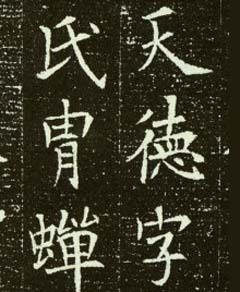 天德字
氏胄蟬